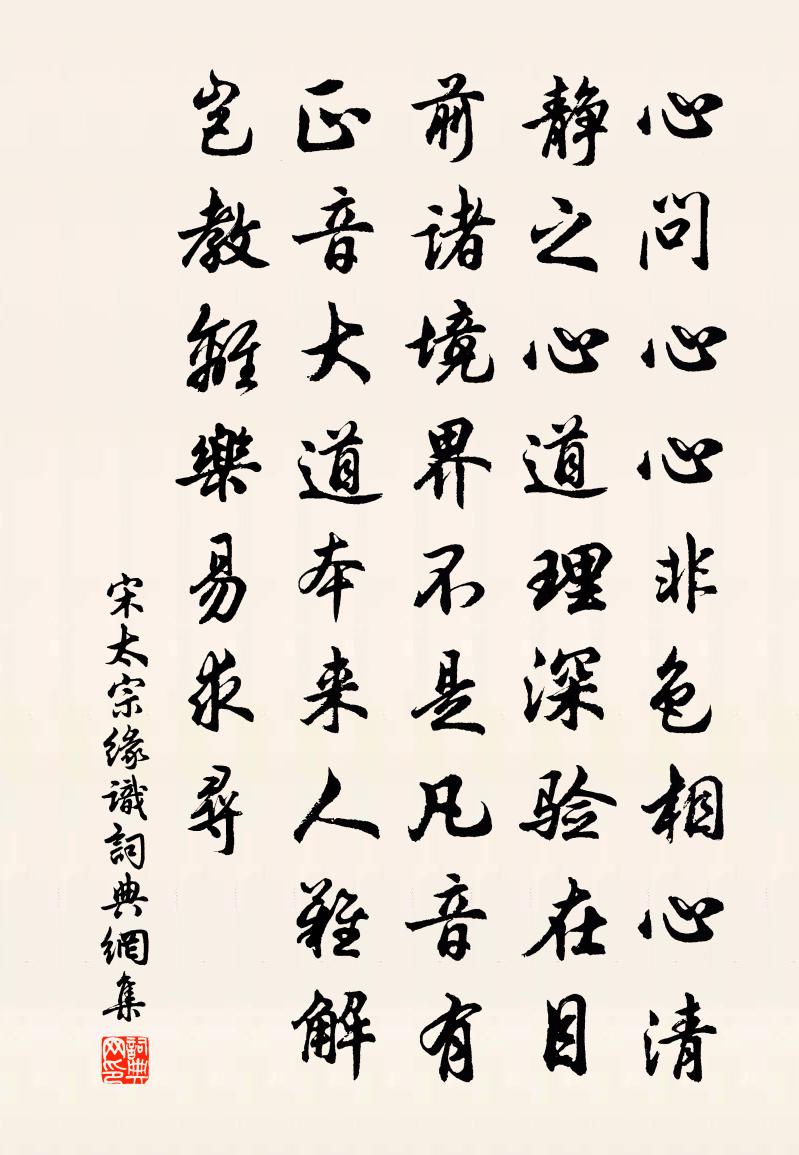 心问心心非色相心清
静之心道理深验在目
前诸境界不是凡音有
正音大道本来人难解
岂教離樂易求尋
宋太宗緣識詞典網集
詞典网印